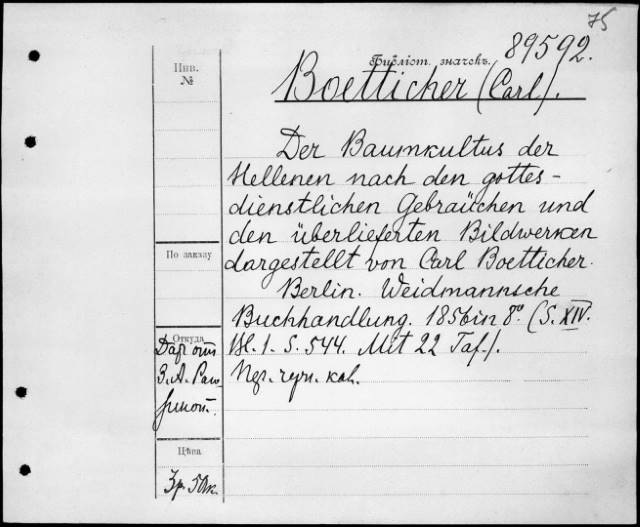 75
Библіот. значекъ.
89592.
Инв.
№
Boetticher (Carl).
Der Baumkultus der
Hellenen nach den gottes-
dienstlichen Gebräuchen und
den überlieferten Bildwerken
dargestellt von Carl Boetticher.
Berlin. Weidmannsche
Buchhandlung. 1856 in 8º. (S. XIV.
Bl. 1. S. 544. Mit 22 Taf.).
По заказу
Откуда
Даръ отъ
З. А.
Цѣна
3р. 50к.